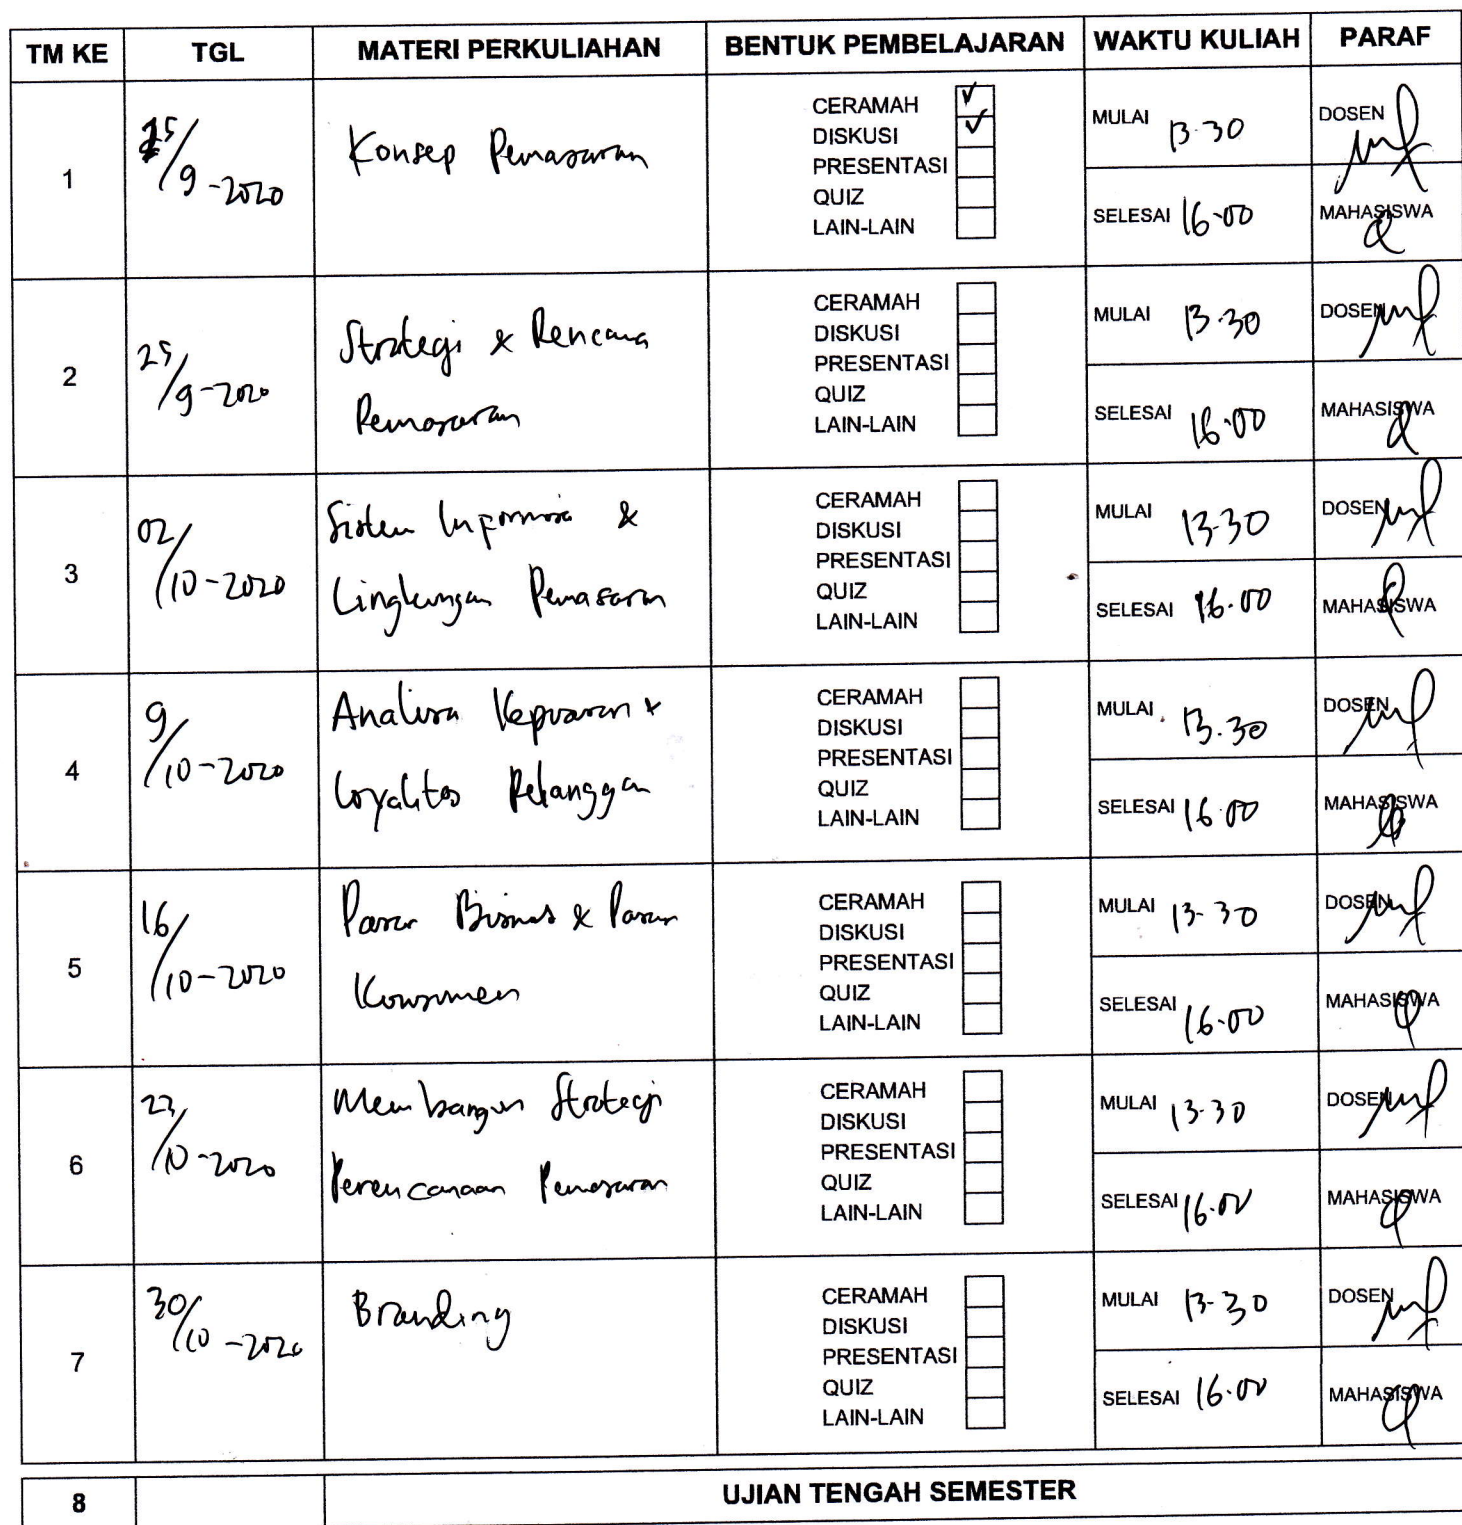 TM KE TGL MATERI PERKULIAHAN BENTUK PEMBELAJARAN WAKTU KULIAH PARAF
1
/9-2020
Konsep Pemasaran
CERAMAH ✓
DISKUSI ✓
PRESENTASI
QUIZ
LAIN-LAIN
MULAI 13.30
SELESAI 16.00
DOSEN
MAHASISWA
2
25/9-2020
Strategi & Rencana
Pemasaran
CERAMAH
DISKUSI
PRESENTASI
QUIZ
LAIN-LAIN
MULAI 13.30
SELESAI 16.00
DOSEN
MAHASISWA
3
02/10-2020
Sistem Informasi &
Lingkungan Pemasaran
CERAMAH
DISKUSI
PRESENTASI
QUIZ
LAIN-LAIN
MULAI 13-30
SELESAI 16.00
DOSEN
MAHASISWA
4
9/10-2020
Analisa Kepuasan &
Loyalitas Pelanggan
CERAMAH
DISKUSI
PRESENTASI
QUIZ
LAIN-LAIN
MULAI 13.30
SELESAI 16.00
DOSEN
MAHASISWA
5
16/10-2020
Pasar Bisnis & Pasar
Konsumen
CERAMAH
DISKUSI
PRESENTASI
QUIZ
LAIN-LAIN
MULAI 13-30
SELESAI 16.00
DOSEN
MAHASISWA
6
23/10-2020
Membangun Strategi
Perencanaan Pemasaran
CERAMAH
DISKUSI
PRESENTASI
QUIZ
LAIN-LAIN
MULAI 13-30
SELESAI 16.00
DOSEN
MAHASISWA
7
30/10-2020
Branding
CERAMAH
DISKUSI
PRESENTASI
QUIZ
LAIN-LAIN
MULAI 13-30
SELESAI 16.00
DOSEN
MAHASISWA
8 UJIAN TENGAH SEMESTER